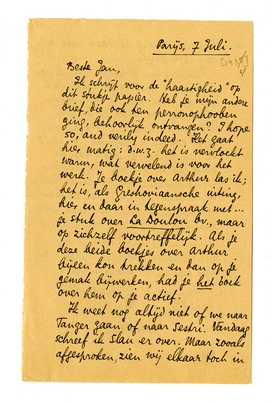 Parijs, 7 Juli.
Beste Jan,
Ik schrijf voor de "haastigheid" op
dit stukje papier. Heb je mijn andere
brief, die ook ten
ging, behoorlijk ontvangen? I hope
so, and verily indeed. Het gaat
hier matig: d.w.z. het is vervloekt
warm, wàt vervelend is voor het
werk. Je boekje over Arthur las ik;
het is, als Greshoviaansche uiting,
hier en daar in tegenspraak met...
je stuk over La Doulou bv., maar
op zichzelf voortreffelijk. Als je
deze beide boekjes over Arthur
bijeen kon trekken en dan op je
gemak bijwerken, had je het boek
over hem op je actief.
Ik weet nog altijd niet of we naar
Tanger gaan of naar Sestri. Vandaag
schreef ik Slau er over. Maar zooals
afgesproken, zien wij elkaar toch in